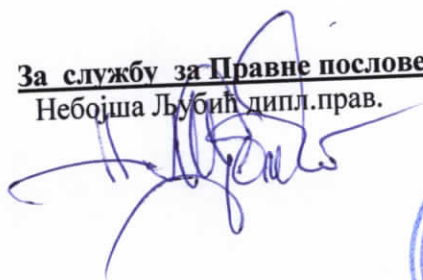 За службу за Правне послове
Небојша Љубић дипл.прав.